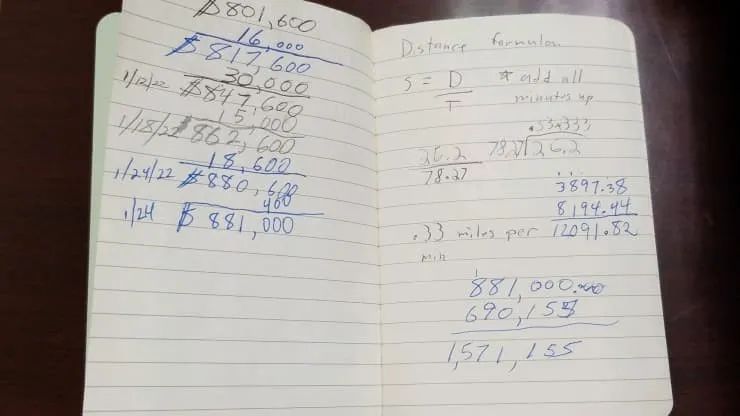 $801,600
16,000
$817,600
30,000
1/12/22 $847,600
15,000
1/18/22 $862,600
18,600
1/24/22 $880,600
400
1/24 $881,000
Distance formula
S = D
T
* add all
minutes up
26.2
78.27
26.2
3897.38
8194.44
.33 miles per 12091.82
min
1
881,000.00
690,155
1,571,155